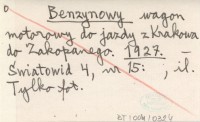 Benzynowy wagon
motorowy do jazdy z Krakowa
do Zakopanego. 1927. –
Światowid 4, nr 15: , il.
Tylko fot.